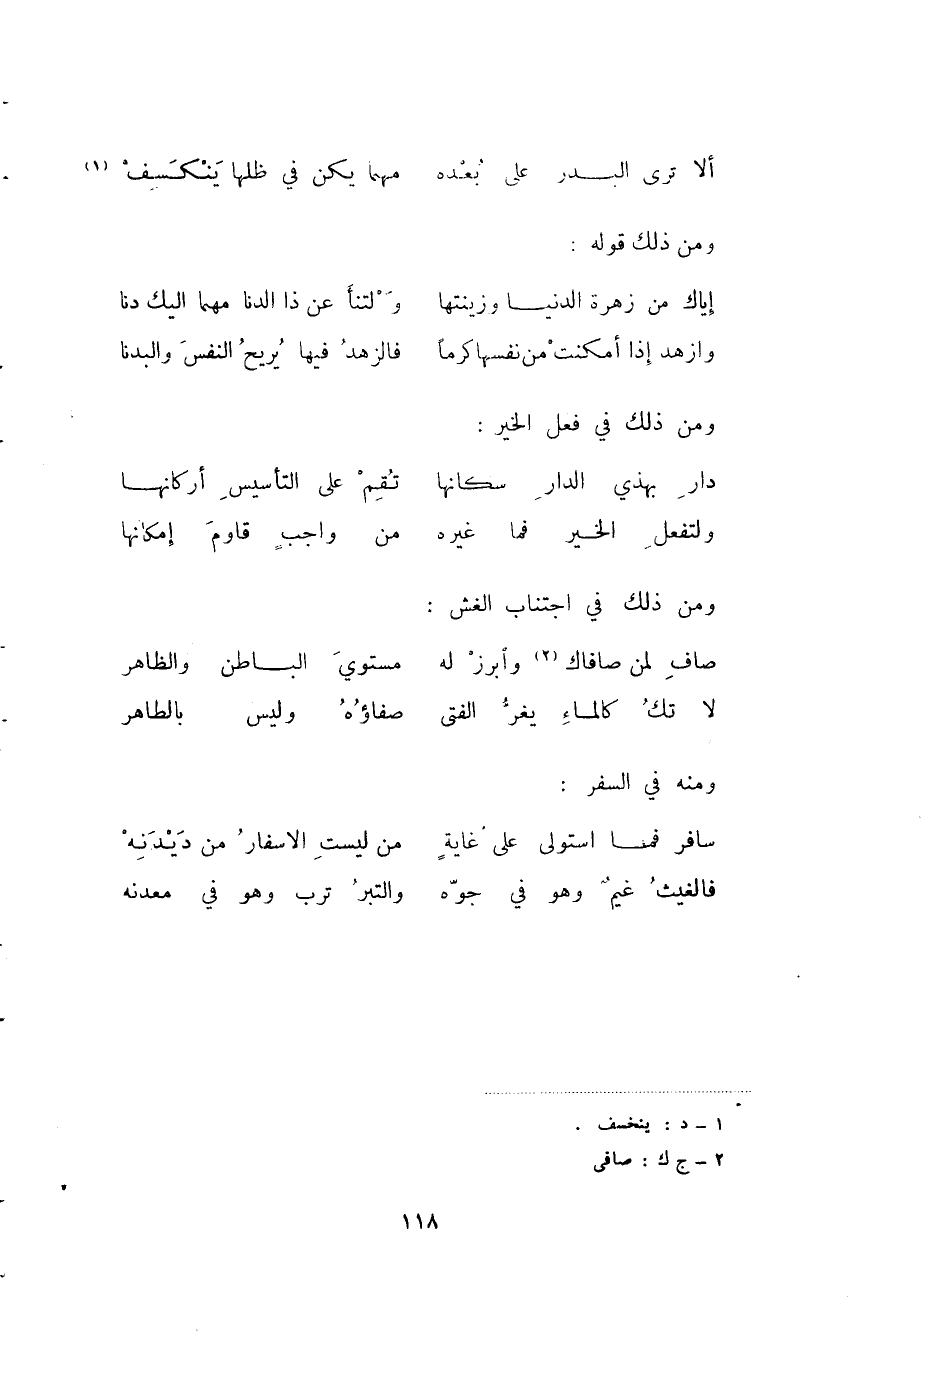 ألا ترى البـــدر على بُعْده مهما يكن في ظلها يَنْكَسِفْ (١)
ومن ذلك قوله :
إياك من زهرة الدنيـــا وزينتها وَلْتنأَ عن ذا الدنا مهما اليك دنا
وازهد إذا أمكنتْ من نفسها كرماً فالزهدُ فيها يُريحُ النفسَ والبدنا
ومن ذلك في فعل الخير :
دارِ بهذي الدارِ سكانها تُقِمْ على التأسيسِ أركانهـــا
ولتفعلِ الخـير فما غيره من واجبٍ قاومَ إمكانها
ومن ذلك في اجتناب الغش :
صافِ لمن صافاك (٢) وأبرزْ له مستويَ البـــاطن والظاهر
لا تكُ كالمـاءِ يغرُّ الفتى صفاؤُهُ وليس بالطاهر
ومنه في السفر :
سافر فمـــا استولى على غايةٍ من ليستِ الاسفارُ من دَيْدَنِهْ
فالغيثُ غيمٌ وهو في جوّه والتبرُ ترب وهو في معدنه
١ – د : ينخسف .
٢ – ج ك : صافى
١١٨